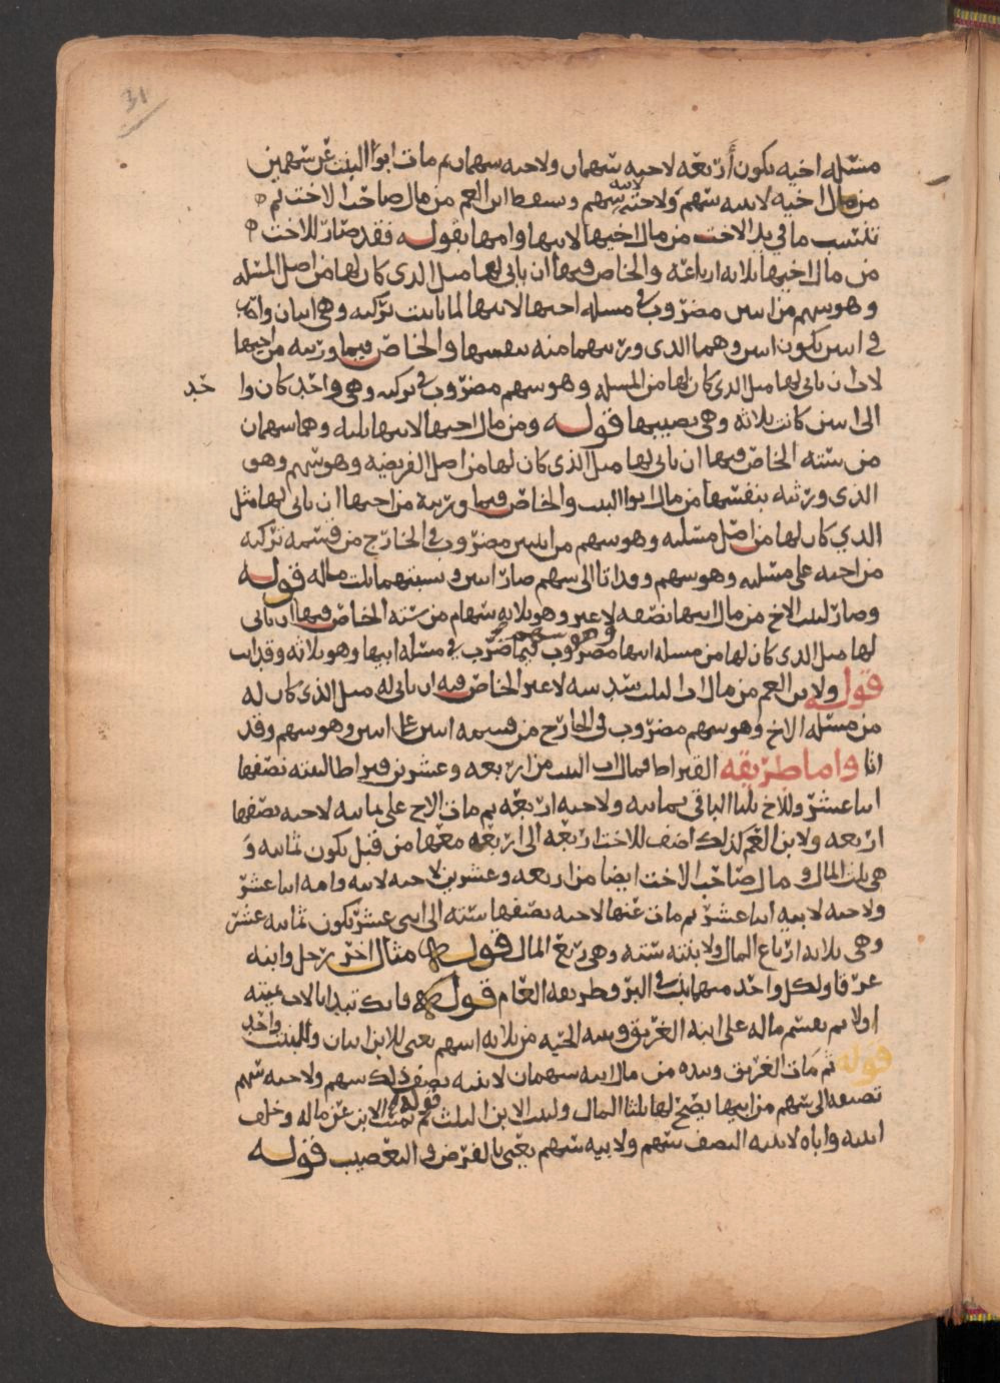 31
مسئله اخيه يكون أربعه لاخيه سهمان ولاخته سهمان ثم مات ابوا البنت عن سهمين
من مال اخيه لابنته سهم ولاخته لابيه سهم وسقط ابن العم من مال صاحب الاخت ثم
تنسب ما في يد الاخت من مال اخيها لابيها وامها بقوله فقد صار للاخت
من مال اخيها ثلاثه ارباعه والخاص فيها ان ياتي لها مثل الذي كان لها من اصل المسئله
وهو سهم من اثنين مضروب في مسئله اخيها لابيها لما باينت تركته وهي اثنان واثنان
في اثنين يكون اثنين وهما الذي ورثتهما منه بنفسها والخاص فيما ورثته من اخيها
لاب ان ياتي لها مثل الذي كان لها من المسئله وهو سهم مضروب في تركته وهي واحد كان وا
حد
الى اثنين كانت ثلاثه وهي نصيبها قوله ومن مال اخيها لابيها ثلثه وهما سهمان
من سته الخاص فيها ان ياتي لها مثل الذي كان لها من اصل الفريضه وهو سهم وهو
الذي ورثته بنفسها من مال ابوا البنت والخاص فيما ورثته من اخيها ان ياتي لها مثل
الذي كان لها من اصل مسئلته وهو سهم من اثنين مضروب في الخارج من قسمه تركته
من اخيه على مسئلته وهو سهم وقد اتا الى سهم صار اثنين ونسبتهما ثلث ماله قوله
وصار لبنت الاخ من مال ابيها نصفه لا غير وهو ثلاثه سهام من سته الخاص فيها ان ياتي
لها مثل الذي كان لها من مسئله ابيها وهو سهم مضروب فيما ضرب في مسئله ابيها وهو ثلاثه وقد اتت
قوله ولابن العم من مال اب البنت سدسه لا غير الخاص فيه ان ياتي له مثل الذي كان له
من مسئله الاخ وهو سهم مضروب في الخارج من قسمه اثنين على اثنين وهو سهم وقد
اتا واما طريقه القيراط فمال اب البنت من اربعه وعشرين قيراطا لبنته نصفها
اثنا عشر وللاخ ثلثا الباقي ثمانيه ولاخته اربعه ثم مات الاخ على ثمانيه لاخته نصفها
اربعه ولابن العم كذلك اضف للاخت اربعه الى اربعه معها من قبل يكون ثمانيه و
هي ثلث المال ومال صاحب الاخت ايضا من اربعه وعشرين لاخته لابيه وامه اثنا عشر
ولاخيه لابيه اثنا عشر ثم مات عنها لاخته نصفها سته الى اثني عشر يكون ثمانيه عشر
وهي ثلاثه ارباع المال ولابنته سته وهي ربع المال قوله مثال اخر رجل وابنه
غرقا ولكل واحد منهما بنت في البر وطريقه العام قوله فانك تبدا بالاب تميته
اولا ثم تقسم ماله على ابنه الغريق وبنته الحيه من ثلاثه اسهم يعني للابن اثنان وللبنت واحد
قوله ثم مات الغريق وبيده من مال ابيه سهمان لابنته نصف ذلك سهم ولاخته سهم
تضيفه الى سهم من ابيها يصح لها ثلثا المال ولبنت الابن الثلث قوله ثم تميت الابن عن ماله وخلف
ابنته واباه لابنته النصف سهم ولابيه سهم يعني بالفرض والتعصيب قوله